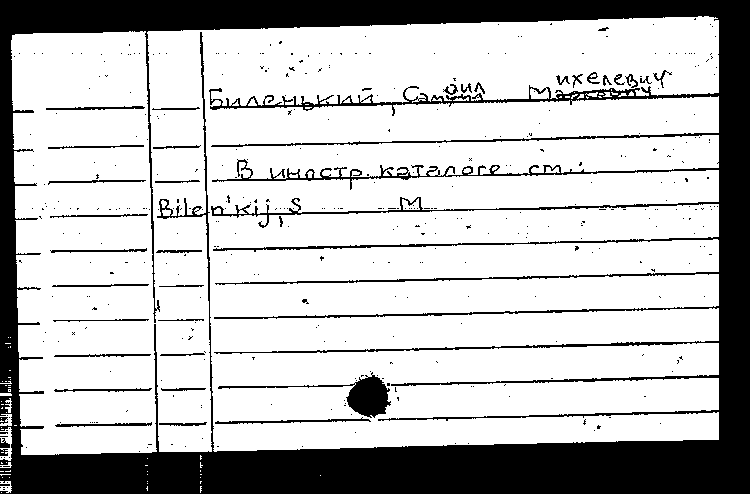 Биленький, Самоил Михелевич
В иностр. каталоге см.:
Bilen'kij, S M